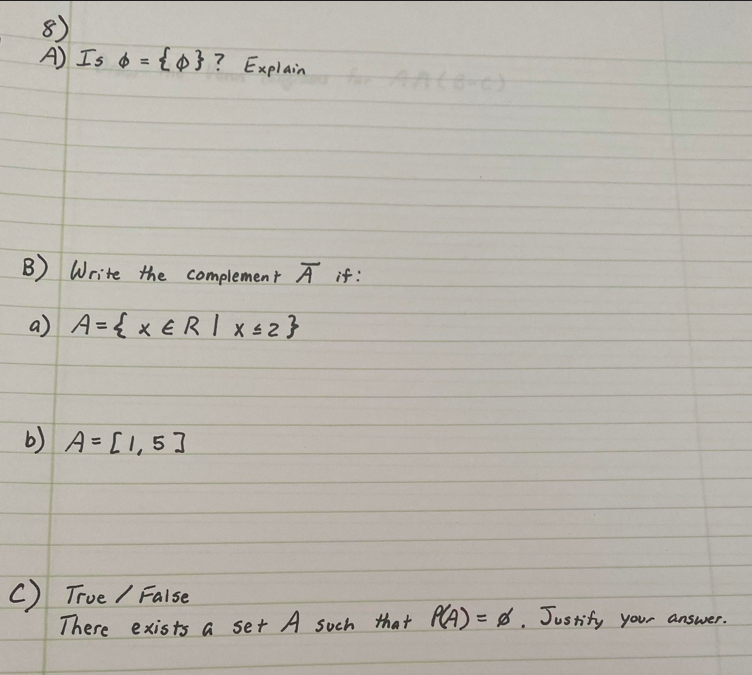 8)
A) Is ϕ = {ϕ}? Explain
B) Write the complement A̅ if:
a) A = { x ∈ R | x ≤ 2 }
b) A = [1, 5]
C) True / False
There exists a set A such that P(A) = ∅. Justify your answer.